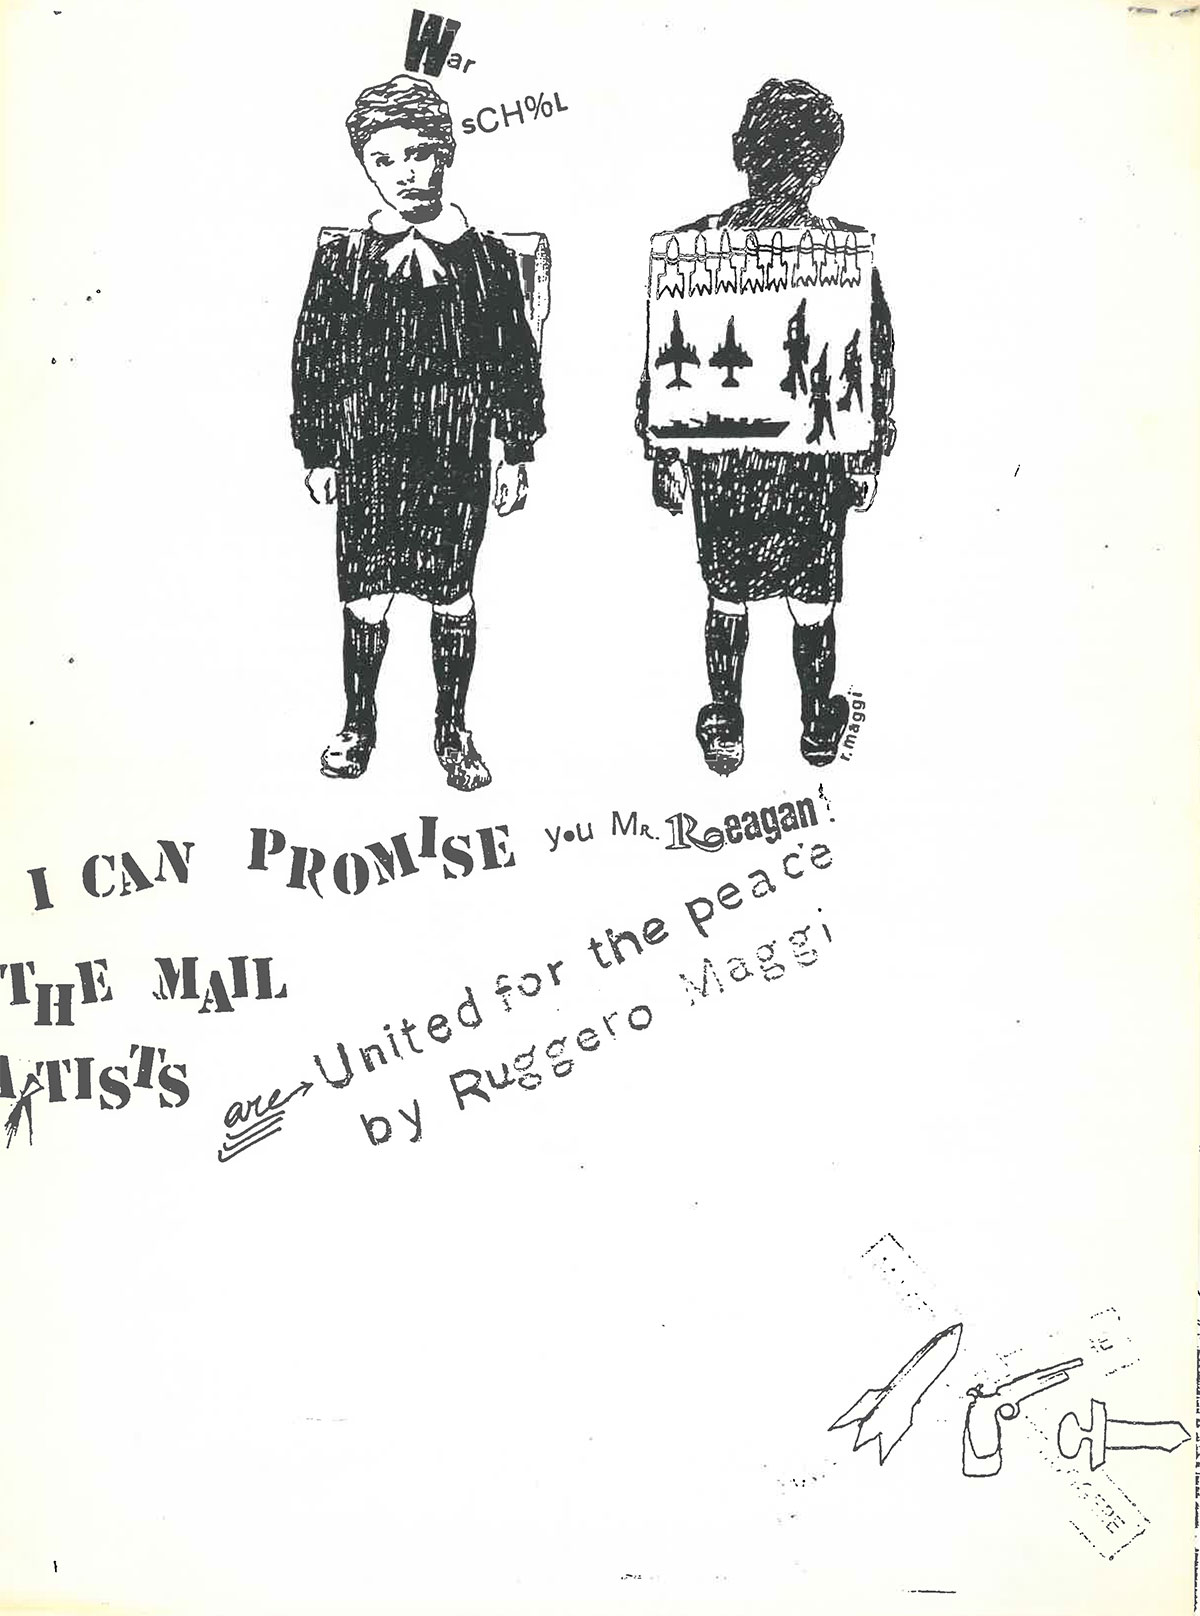 War
sCH%L
r. maggi
I CAN PROMISE you Mr. Reagan!
THE MAIL
ARTISTS are → United for the peace
by Ruggero Maggi